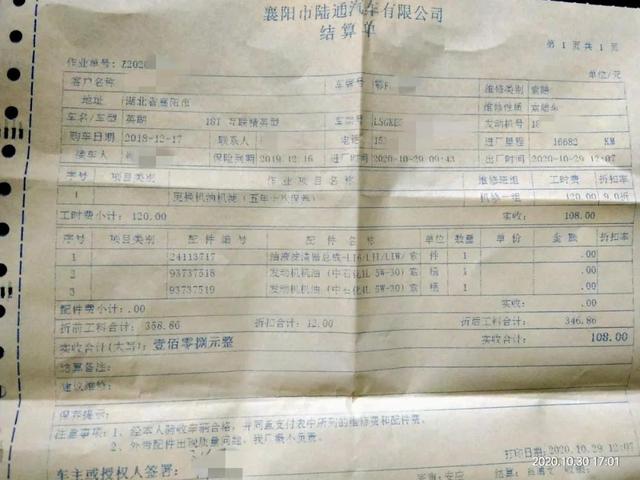 襄阳市陆通汽车有限公司
结算单
第 1 页 共 1 页
作业单号: Z2020
单位/元
客户名称 车牌号 鄂F. 维修类别 索赔
地址 湖北省襄阳市 维修性质 索赔车
车名/车型 英朗 18T 互联精英型 车架号 LSGKE 发动机号 18
购车日期 2018-12-17 联系人 电话 15 进厂里程 16682 KM
接车人 保险到期 2019.12.16 进厂时间 2020-10-29 09:43 出厂时间 2020-10-29 12:07
序号 项目类别 作业项目名称 维修班组 工时费 折扣率
1 更换机油机滤 机修一组 120.00 9.0折
工时费小计: 120.00 实收: 108.00
序号 项目类别 配件编号 配件名称 单位 数量 单价 金额 折扣率
1 24113717 件 1 .00
2 93737518 发动机机油 (中石化4L 5W-30) 索 桶 1 .00
3 93737519 发动机机油 (中石化1L 5W-30) 索 桶 1 .00
配件费小计: .00 实收: .00
折前工料合计: 358.86 折扣合计: 12.00 折后工料合计: 346.86
实收合计(大写): 壹佰零捌元整 实收合计: 108.00
结算备注:
建议维修:
保存提示:
注意事项: 1、经本人验收车辆合格, 并同意支付表中所列的维修费和配件费。
2、外带配件出现质量问题, 我厂概不负责。
打印日期: 2020.10.29 12:07
车主或授权人签署:
2020.10.30 17:01